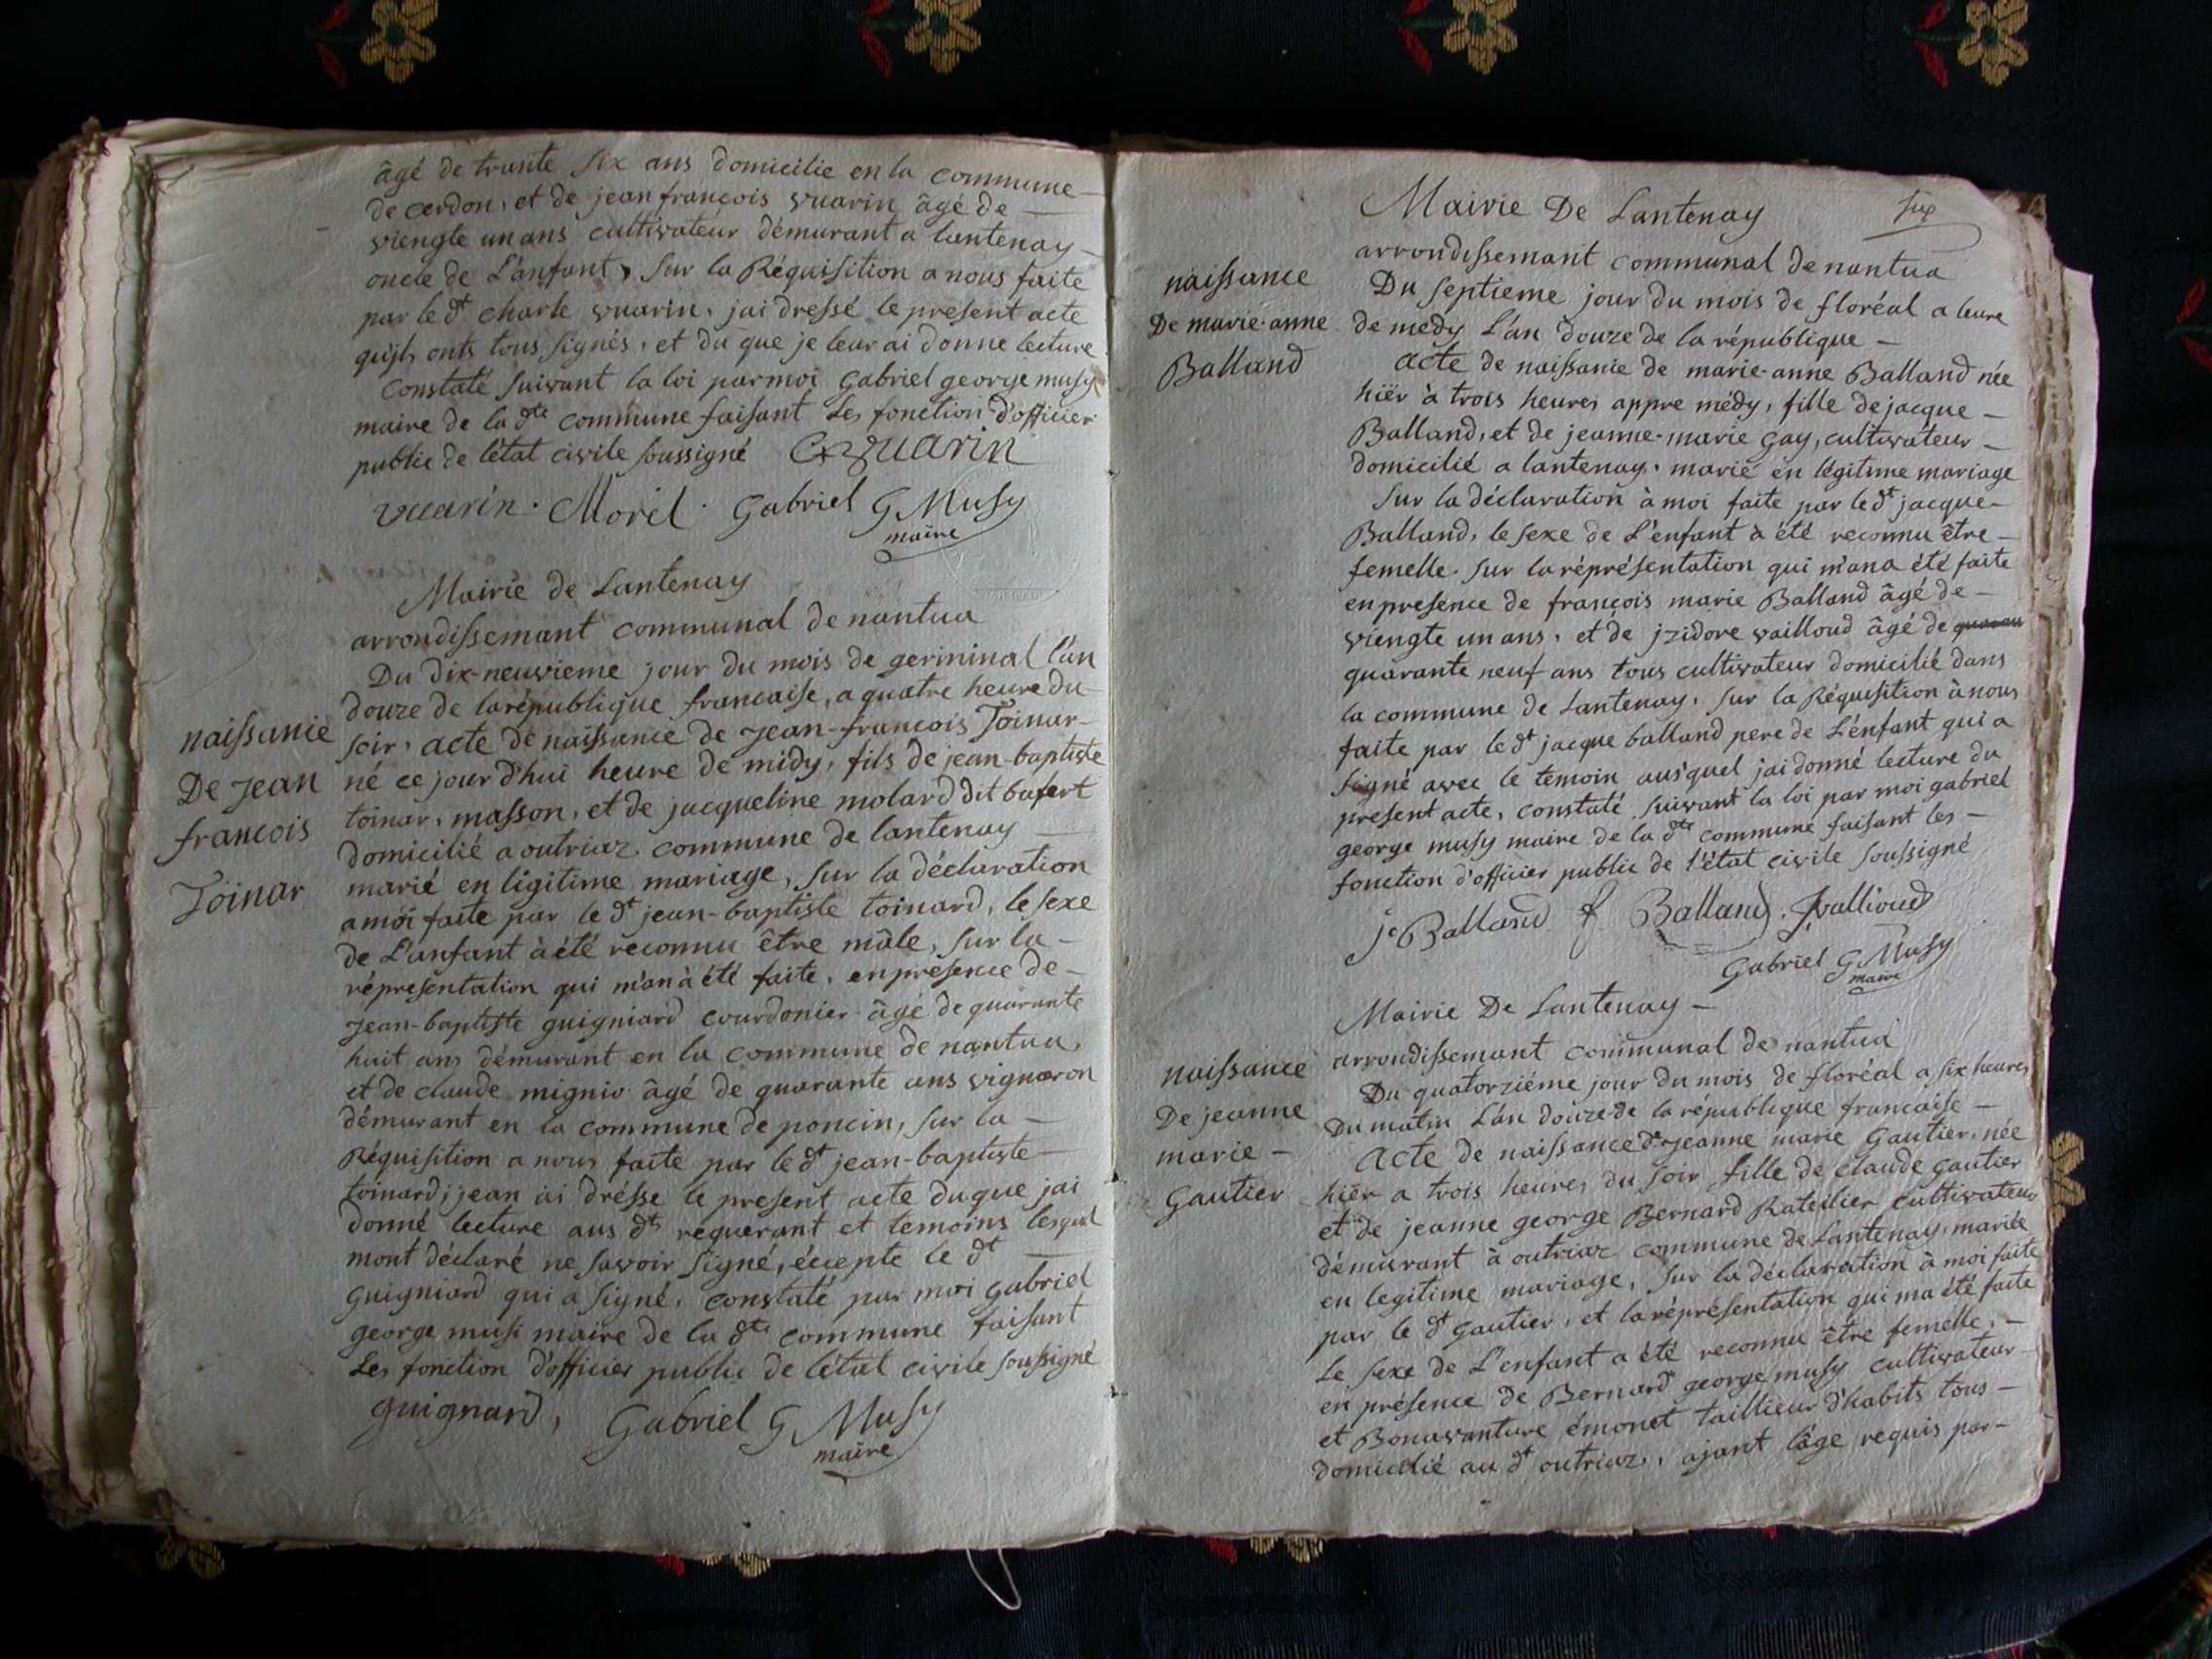 âgé de trante six ans domicilié en la commune
de cerdon, et de jean françois vuarin âgé de
viengte un ans cultivateur démurant a lantenay
oncle de L'anfant, sur la Réquisition a nous faite
par le dt charle vuarin, jai dressé le present acte
quijls onts tous signés, et du que je leur ai donne lecture
Constaté suivant la loi par moi gabriel george musy
maire de la dte commune faisant Les fonction d'officier
public de l'état civile soussigné vuarin
vuarin. Morel. Gabriel G Musy
maire
Mairie de Lantenay
arrondissemant communal de nantua
Du dix-neuvieme jour du mois de germinal l'an
douze de la république francaise, a quatre heure du
soir, acte de naissance de Jean-francois Toinar
né ce jour d'hui heure de midy, fils de jean-baptiste
toinar, masson, et de jacqueline molard dit bufert
domicilié a outriaz commune de lantenay
marié en ligitime mariage, sur la déclaration
a moi faite par le dt jean-baptiste toinard, le sexe
de L'anfant à été reconnu être mâle, sur la
répresentation qui m'an à été faite, en présence de
jean-baptiste guigniard courdonier âgé de quarante
huit ans démurant en la commune de nantua,
et de claude mignio âgé de quarante ans vigneron
démurant en la commune de poncin, sur la
Réquisition a nous faite par le dt jean-baptiste
toinard jean ai drésse le present acte duque jai
donné lecture aus dts requerant et temoins lesquel
mont déclaré ne savoir signé, écepte le dt
guigniard qui a signé, constaté par moi gabriel
george musi maire de la dte commune faisant
Les fonction d'officier public de l'état civile soussigné
guignard, Gabriel G Musy
maire
naissance
De Jean
francois
Toinar
Mairie De Lantenay
arrondissemant communal de nantua
Du septieme jour du mois de floréal a leure
de medy L'an douze de la république
acte de naissance de marie-anne Balland née
hiër à trois heures appre médy, fille de jacque
Balland, et de jeanne-marie Gay, cultivateur
domicilié a lantenay. marié en légitime mariage
sur la déclaration à moi faite par le dt jacque
Balland, le sexe de L'enfant à été reconnu être
femelle. sur la réprésentation qui m'an a été faite
en presence de françois marie Balland âgé de
viengte un ans, et de jzidore vailloud âgé de
quarante neuf ans tous cultivateur domicilié dans
la commune de Lantenay, sur la Réquisition à nous
faite par le dt jacque balland pere de L'enfant qui a
signé avec le temoin ausquel jai donné lecture du
present acte, constaté suivant la loi par moi gabriel
george musy maire de la dte commune faisant les
fonction d'officier public de l'état civile soussigné
je Balland f Balland. J vallioud
Gabriel G Musy
maire
naissance
De marie-anne
Balland
Mairie De Lantenay
arrondissemant communal de nantua
Du quatorziéme jour du mois de floréal a six heures
Du matin L'an douze de la république francaise
Acte de naissance de jeanne marie Gautier, née
hiër a trois heures du soir fille de claude gautier
et de jeanne george Bernard Ratelier cultivateur
démurant à outriaz commune de Lantenay, mariée
en legitime mariage, sur la déclaration à moi faite
par le dt gautier, et la réprésentation qui ma été faite
Le sexe de L'enfant a été reconnu être femelle,
en présence de Bernard george musy cultivateur
et Bonavanture émonet taillieur d'habits tous
domicilié au dt outriaz, ajant l'âge requis par
naissance
De jeanne
marie
Gautier